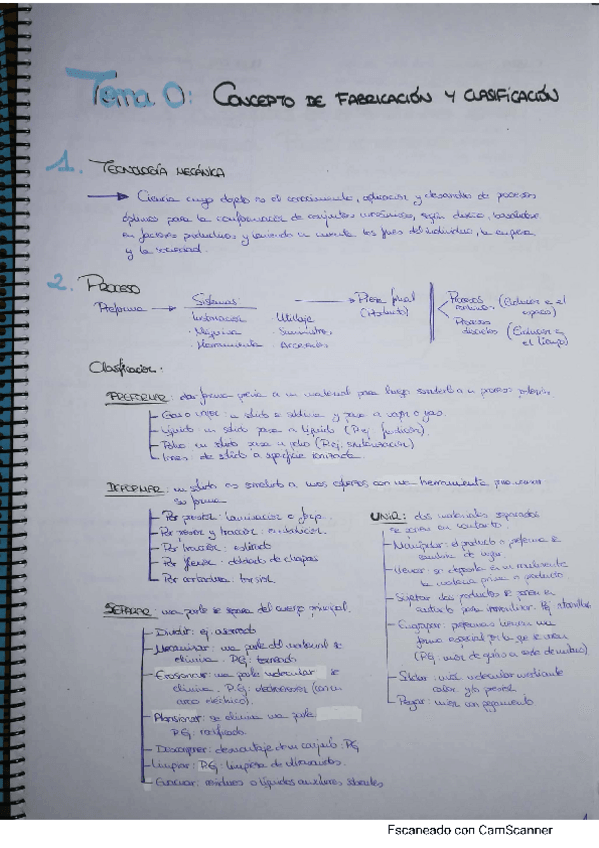 Tema 0: CONCEPTO DE FABRICACIÓN Y CLASIFICACIÓN
1. TECNOLOGÍA MECÁNICA
Ciencia cuyo objeto es el conocimiento, aplicación y desarrollo de procesos
óptimos para la conformación de conjuntos mecánicos, según diseño, basándose
en factores productivos y teniendo en cuenta los fines del individuo, la empresa
y la sociedad.
2. PROCESO
Preforma → Sistemas: → Pieza final
(Producto)
· Instalación · Utillaje
· Máquina · Suministros
· Herramienta · Accesorios
Procesos continuos (Evolucionan en el
espacio)
Procesos discretos (Evolucionan en
el tiempo)
Clasificación:
PREFORMAR: dar forma previa a un material para luego someterlo a un proceso
Gas o vapor: un sólido se sublima y pasa a vapor o gas.
Líquido: un sólido pasa a líquido (P.ej. fundición).
Polvo: un sólido pasa a polvo (P.ej. sinterización)
Iones: de sólido a superficie ionizada
DEFORMAR: un sólido es sometido a unos esfuerzos con una herramienta para
su forma
Por presión: laminación o forja.
Por presión y tracción: embutición.
Por tracción: estirado
Por flexión: doblado de chapas
Por cortadura: torsión
SEPARAR: una parte se separa del cuerpo principal.
Dividir: ej. aserrado
Mecanizar: una parte del material se
elimina. P.Ej: torneado
Erosionar: una parte molecular se
elimina. P.Ej: electroerosión (con un
arco eléctrico).
se elimina una parte
P.Ej: rectificado
Descomponer: desmontaje de un conjunto. P.Ej
Limpiar: P.Ej: limpieza de ultrasonidos.
Evacuar: residuos o líquidos auxiliares sobrantes
UNIR: dos materiales separados
se ponen en contacto.
Manipular: el producto o preforma se
cambia de lugar.
Llenar: se deposita en un recipiente
la materia prima o producto
Sujetar: dos productos se ponen en
contacto para inmovilizar. P.ej. atornillar
Engarzar: preformas tienen una
forma especial por la que se unen
Soldar: unión molecular mediante
calor y/o presión
Pegar: unión con pegamento
1
Escaneado con CamScanner